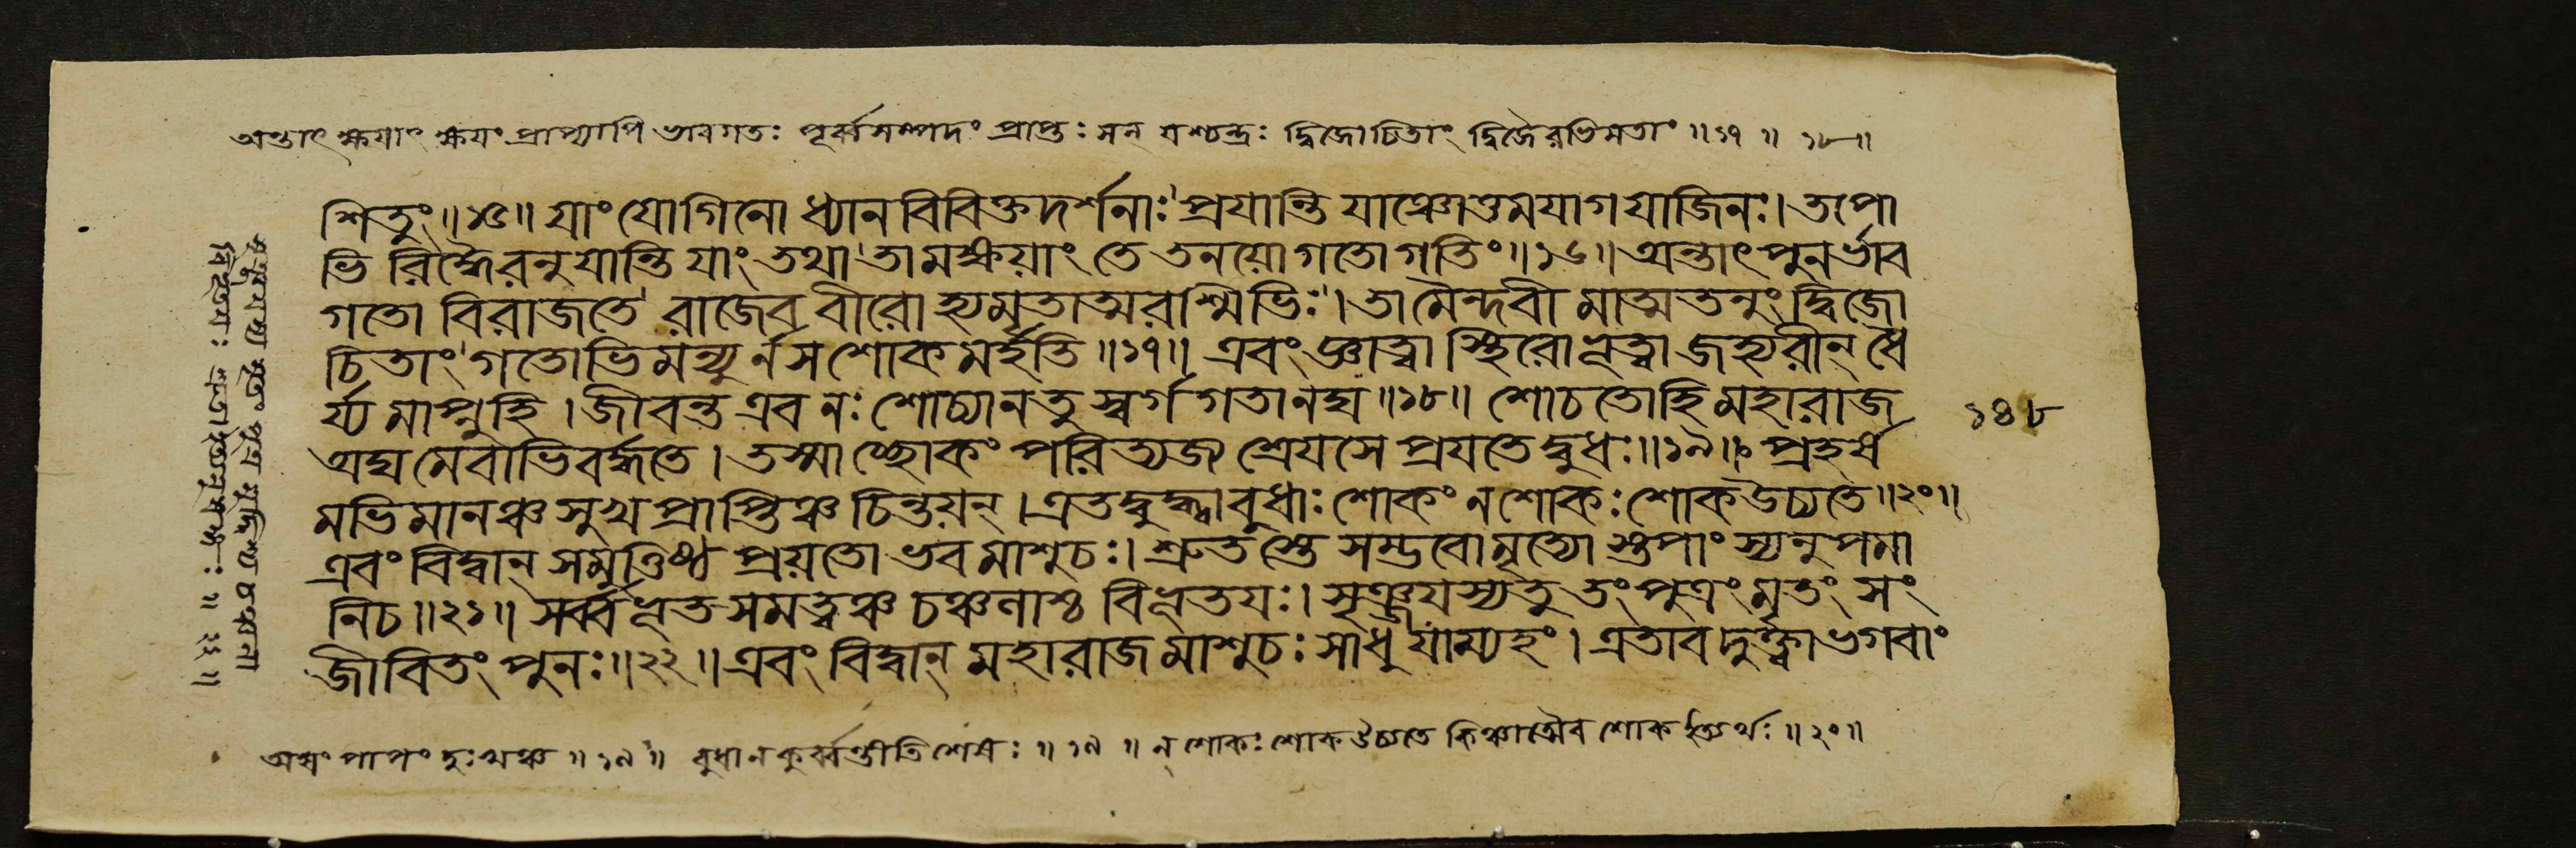 অন্তাৎ ক্ষয়াৎ ক্ষয়ং প্রাপ্যাপি ভাবগতঃ পূর্ব্বসম্পদং প্রাপ্তঃ সন্ যশ্চন্দ্রঃ দ্বিজোচিতাং দ্বিজৈরভিমতাং ॥১৭॥ ১৮॥
শিতুং॥১৫॥ যাং যোগিনো ধ্যানবিবিক্তদর্শনাঃ প্রযান্তি যাঞ্চোত্তমযাগযাজিনঃ। তপো
ভিরিদ্ধৈরনুযান্তি যাং তথা তামক্ষয়াং তে তনয়ো গতো গতিং॥১৬॥ অন্তাৎ পুনর্ভাব
গতো বিরাজতে রাজেব বীরো হ্যমৃতাত্মরশ্মিভিঃ। তামৈন্দবীমাত্মতনুং দ্বিজো
চিতাং গতোভিমন্যুর্নসশোকমর্হতি॥১৭॥ এবং জ্ঞাত্বা স্থিরো ভূত্বা জহ্যরীন্ ধৈ
র্য্যমাপ্নুহি। জীবন্ত এব নঃ শোচ্যা নতু স্বর্গগতানঘ॥১৮॥ শোচতো হি মহারাজ
অঘমেবাভিবর্দ্ধতে। তস্মাচ্ছোকং পরিত্যজ্য শ্রেয়সে প্রযতেদ্বুধঃ॥১৯॥ প্রহর্ষ
মভিমানঞ্চ সুখপ্রাপ্তিঞ্চ চিন্তয়ন্। এতদ্বুদ্ধ্বা বুধাঃ শোকং ন শোকঃ শোক উচ্যতে॥২০॥
এবং বিদ্বান্ সমুত্তিষ্ঠ প্রয়তো ভব মাশুচঃ। শ্রুতস্তে সম্ভবো মৃত্যোস্তপাংস্যনুপমা
নিচ॥২১॥ সর্ব্বভূতসমত্বঞ্চ চঞ্চলাশ্চ বিভূতয়ঃ। সৃঞ্জয়স্য তু তং পুত্রং মৃতং সং
জীবিতং পুনঃ॥২২॥ এবং বিদ্বান্ মহারাজ মাশুচঃ সাধু যাম্যহং। এতাবদুক্ত্বা ভগবাং
১৪৮
অঘং পাপং দুঃখঞ্চ॥১৯॥ বুধা ন কুর্ব্বন্তীতি শেষঃ॥১৯॥ ন শোকঃ শোক উচ্যতে কিঞ্চাত্রৈব শোক ইত্যর্থঃ॥২০॥